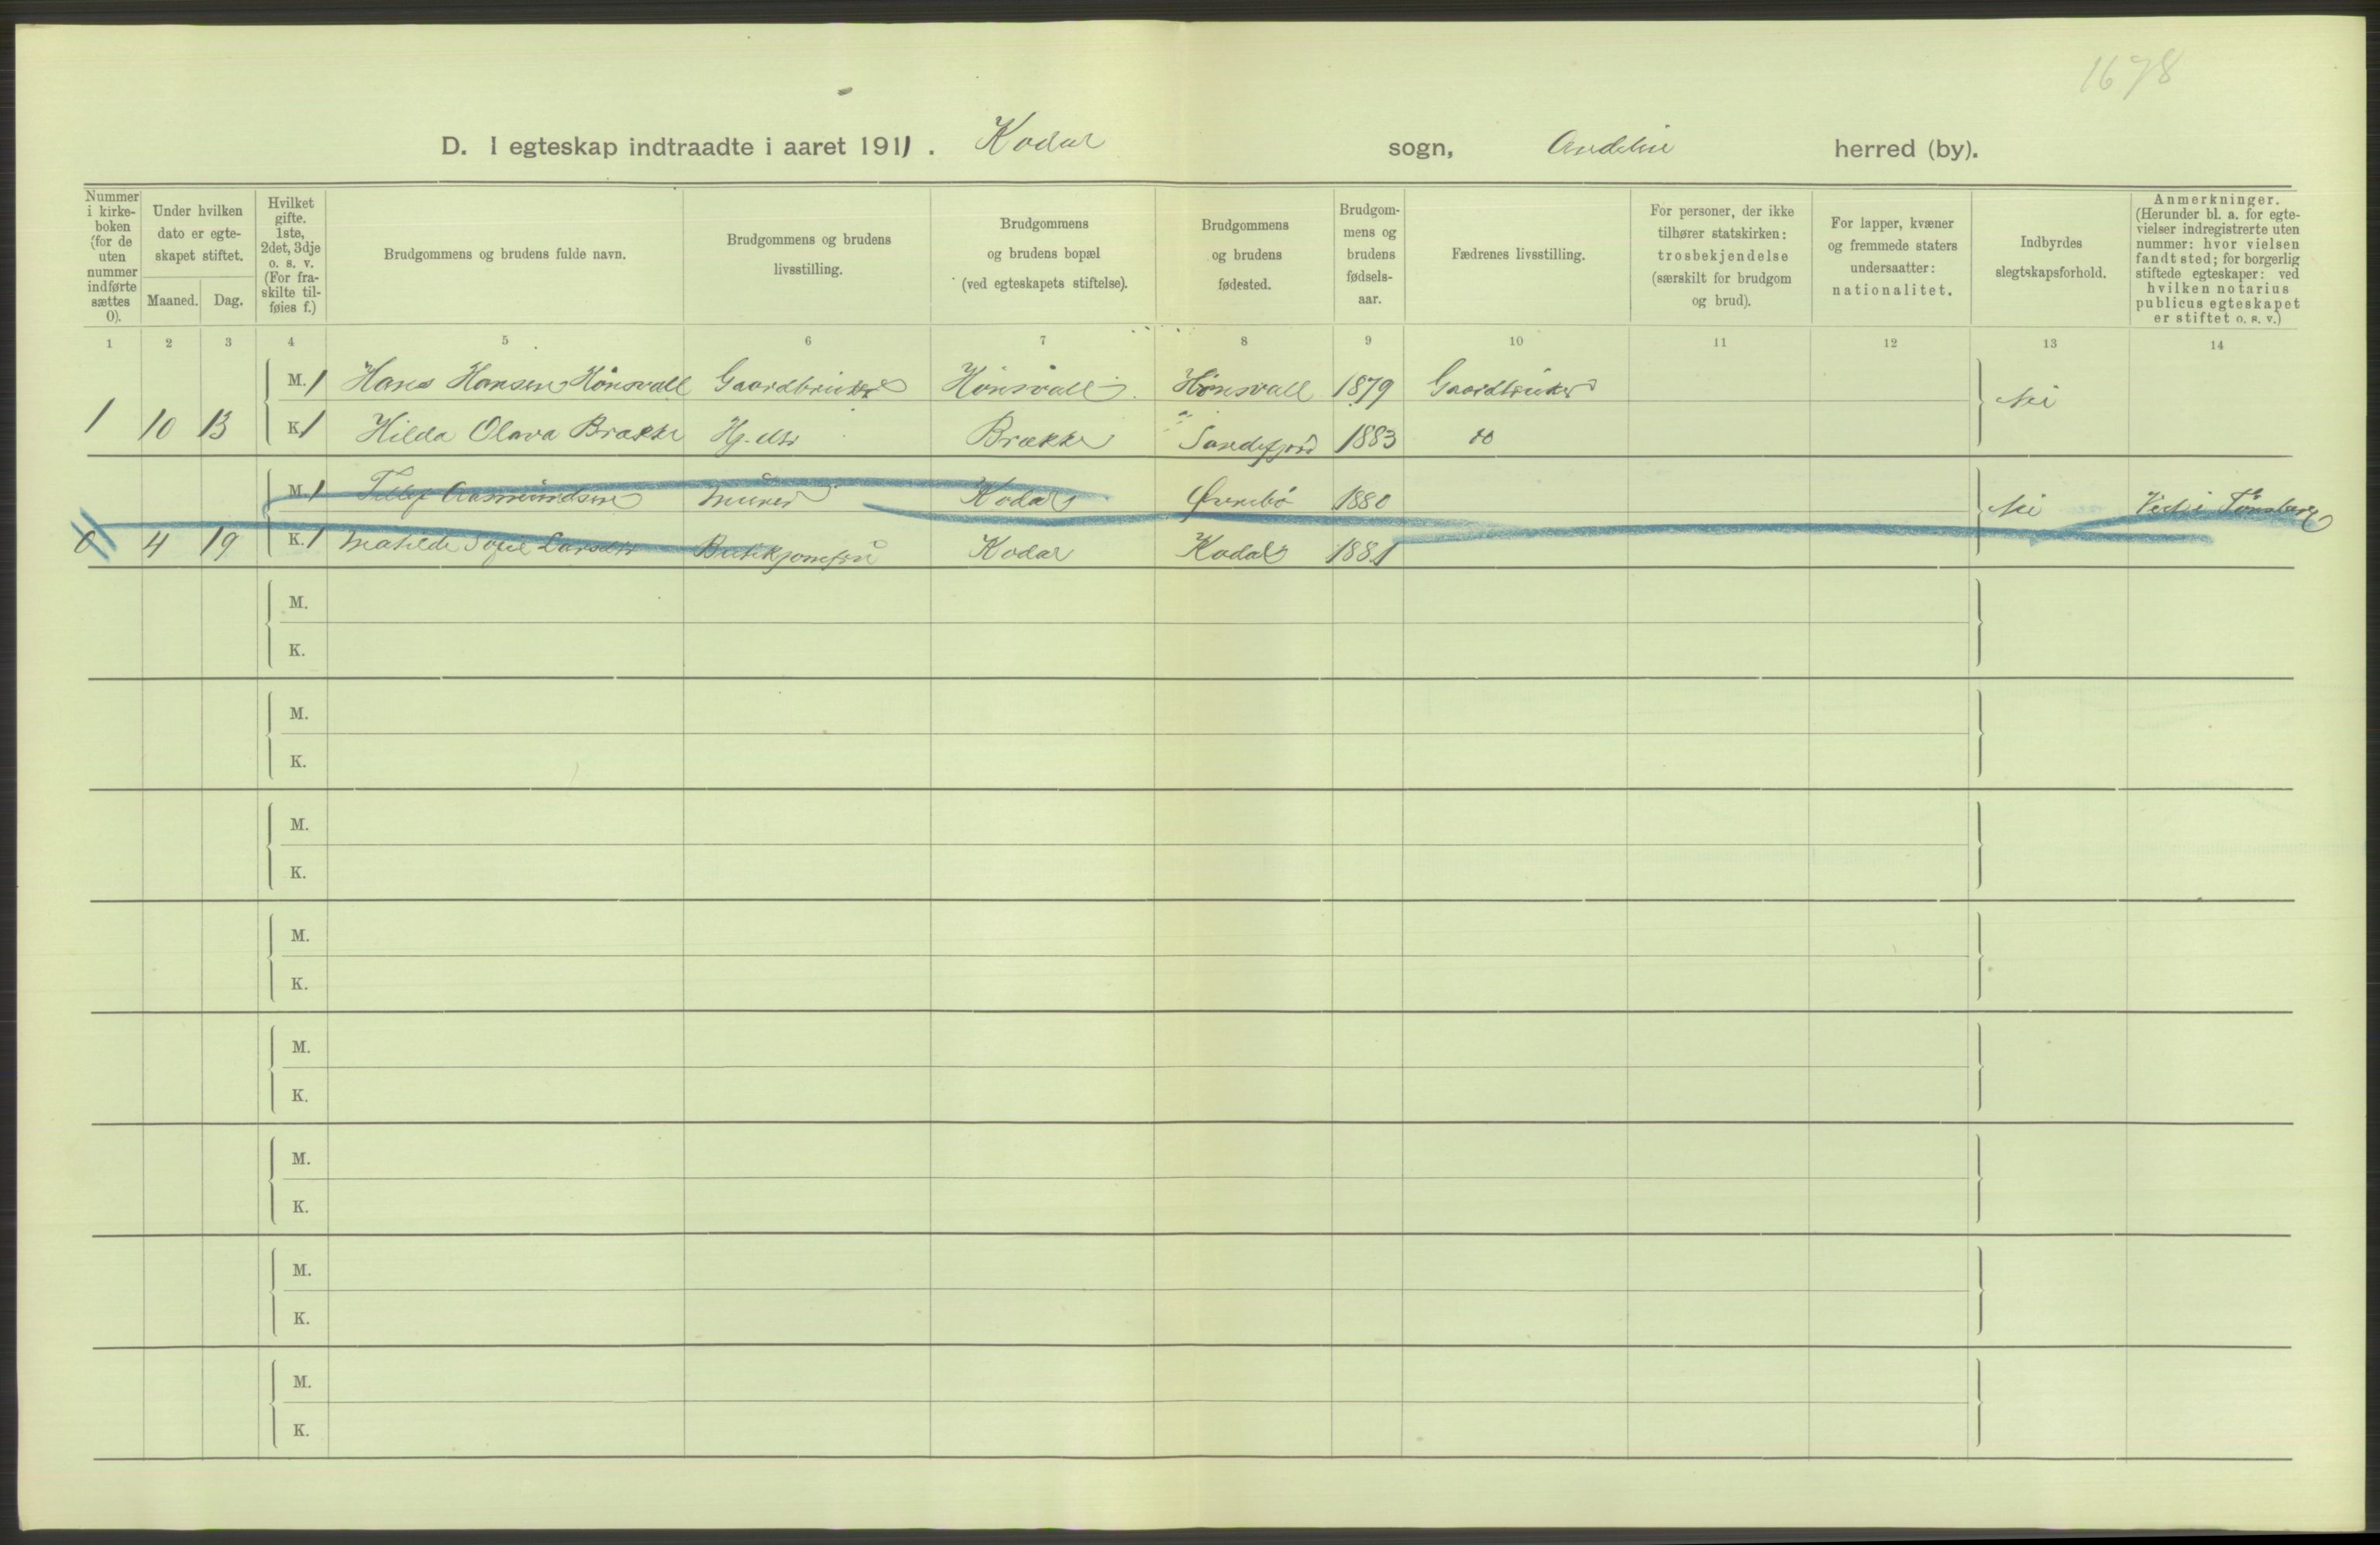 1678
D. I egteskap indtraadte i aaret 1911. Kodal sogn, Andebu herred (by).
Nummer i kirke- boken (for de uten nummer indførte sættes 0).
Under hvilken dato er egte- skapet stiftet.
Maaned. Dag.
Hvilket gifte. 1ste, 2det, 3dje o. s. v. (For fra- skilte til- føies f.)
Brudgommens og brudens fulde navn.
Brudgommens og brudens livsstilling.
Brudgommens og brudens bopæl (ved egteskapets stiftelse).
Brudgommens og brudens fødested.
Brudgom- mens og brudens fødsels- aar.
Fædrenes livsstilling.
For personer, der ikke tilhører statskirken: trosbekjendelse (særskilt for brudgom og brud).
For lapper, kvæner og fremmede staters undersaatter: nationalitet.
Indbyrdes slegtskapsforhold.
Anmerkninger. (Herunder bl. a. for egte- vielser indregistrerte uten nummer: hvor vielsen fandt sted; for borgerlig stiftede egteskaper: ved hvilken notarius publicus egteskapet er stiftet o. s. v.)
1 2 3 4 5 6 7 8 9 10 11 12 13 14
M. 1 Hans Hansen Hönsvall Gaardbruker Hönsvall Hönsvall 1879 Gaardbruker Nei
1 10 13 K. 1 Hilda Olava Brække Hj. dtr Brække Sandefjord 1883 do
M. 1 Tellef Aasmundsen Murer Kodal Øvrebö 1880 Nei Viet i Tönsberg
0 4 19 K. 1 Mathilde Sofie Larsen Butikjomfru Kodal Kodal 1881
M.
K.
M.
K.
M.
K.
M.
K.
M.
K.
M.
K.
M.
K.
M.
K.